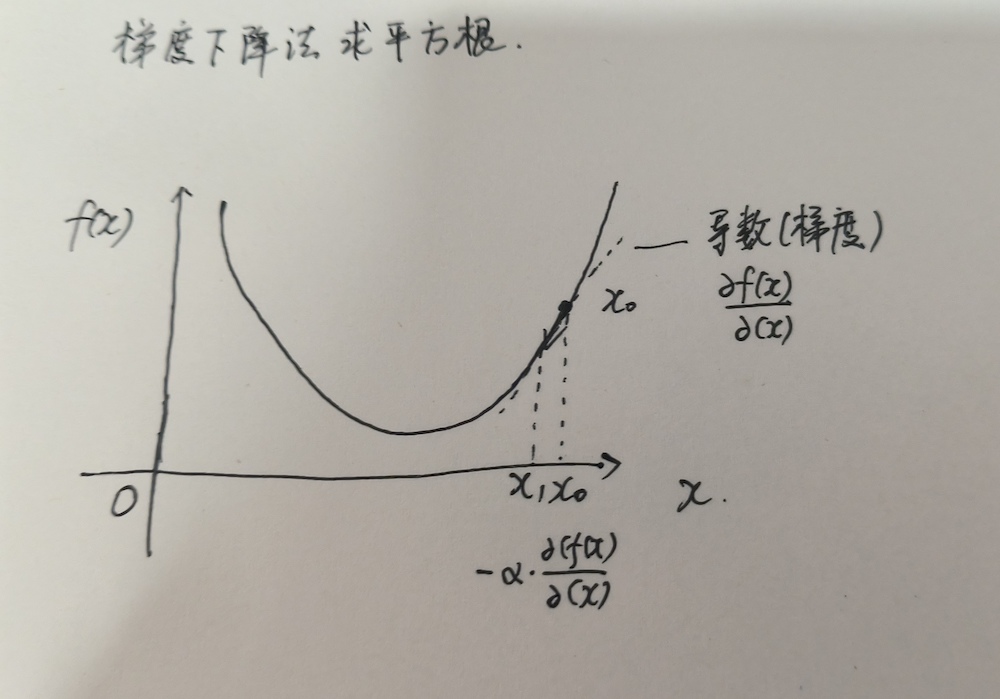 梯度下降法求平方根.
f(x)
导数(梯度)
∂f(x)/∂(x)
x₀
O
x₁ x₀
x.
-α·∂(f(x)/∂(x)